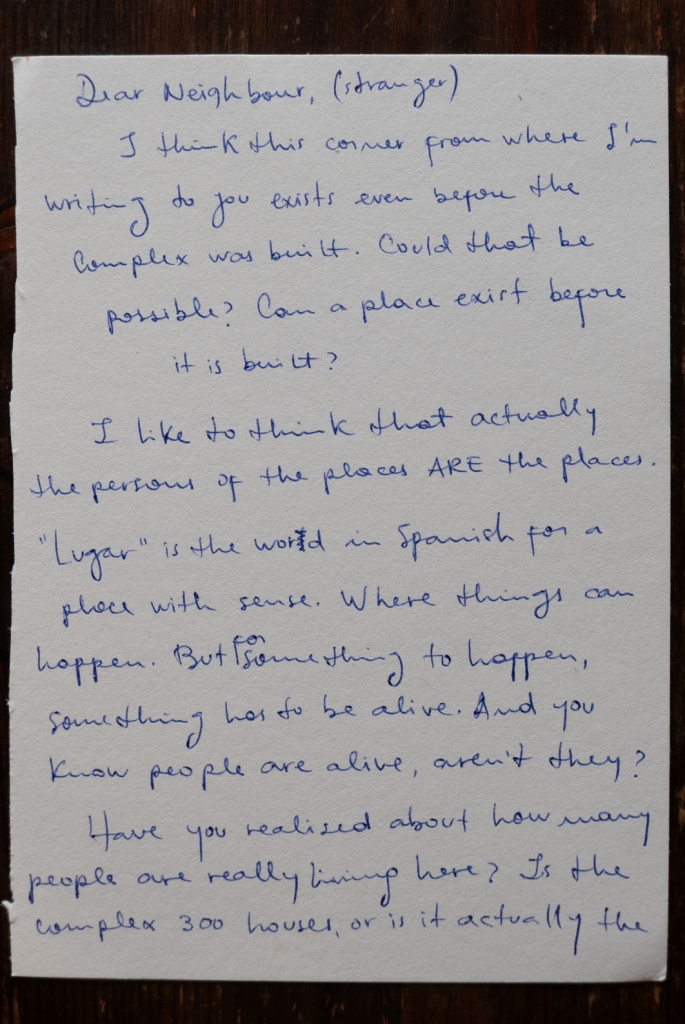 Dear Neighbour, (stranger)
I think this corner from where I'm
writing to you exists even before the
complex was built. Could that be
possible? Can a place exist before
it is built?
I like to think that actually
the persons of the places ARE the places.
"Lugar" is the word in Spanish for a
place with sense. Where things can
happen. But for something to happen,
something has to be alive. And you
know people are alive, aren't they?
Have you realised about how many
people are really living here? Is the
complex 300 houses, or is it actually the